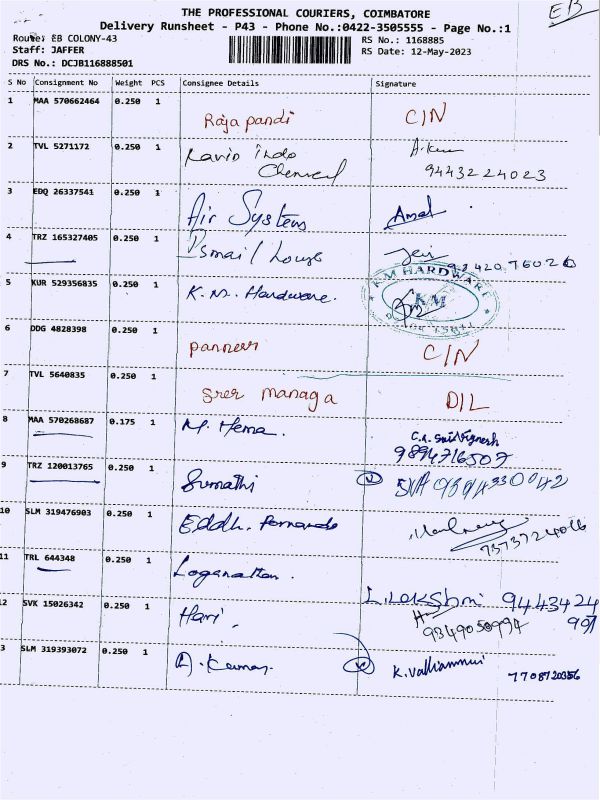 EB
THE PROFESSIONAL COURIERS, COIMBATORE
Delivery Runsheet - P43 - Phone No.:0422-3505555 - Page No.:1
Route: EB COLONY-43 RS No.: 1168885
Staff: JAFFER RS Date: 12-May-2023
DRS No.: DCJB116888501
S No Consignment No Weight PCS Consignee Details Signature
1 MAA 570662464 0.250 1 Raja pandi CIN
2 TVL 5271172 0.250 1 Kavin indo
Chemical 9443224023
3 EDQ 26337541 0.250 1 Air Systems Amal
4 TRZ 165327405 0.250 1 Ismail house
KM HARDWARE
KM
5 KUR 529356835 0.250 1 K.M. Hardware.
6 DDG 4828398 0.250 1 panneer CIN
7 TVL 5640835 0.250 1 sree managa DIL
8 MAA 570268687 0.175 1 M. Hema.
9894716507
9 TRZ 120013765 0.250 1 Sumathi
10 SLM 319476903 0.250 1 Fernando
11 TRL 644348 0.250 1 Loganathan.
L. Lakshmi 9443424
991
12 SVK 15026342 0.250 1 Hari. 9349050994
3 SLM 319393072 0.250 1 D. Kumar K. Valliammai
7708720356